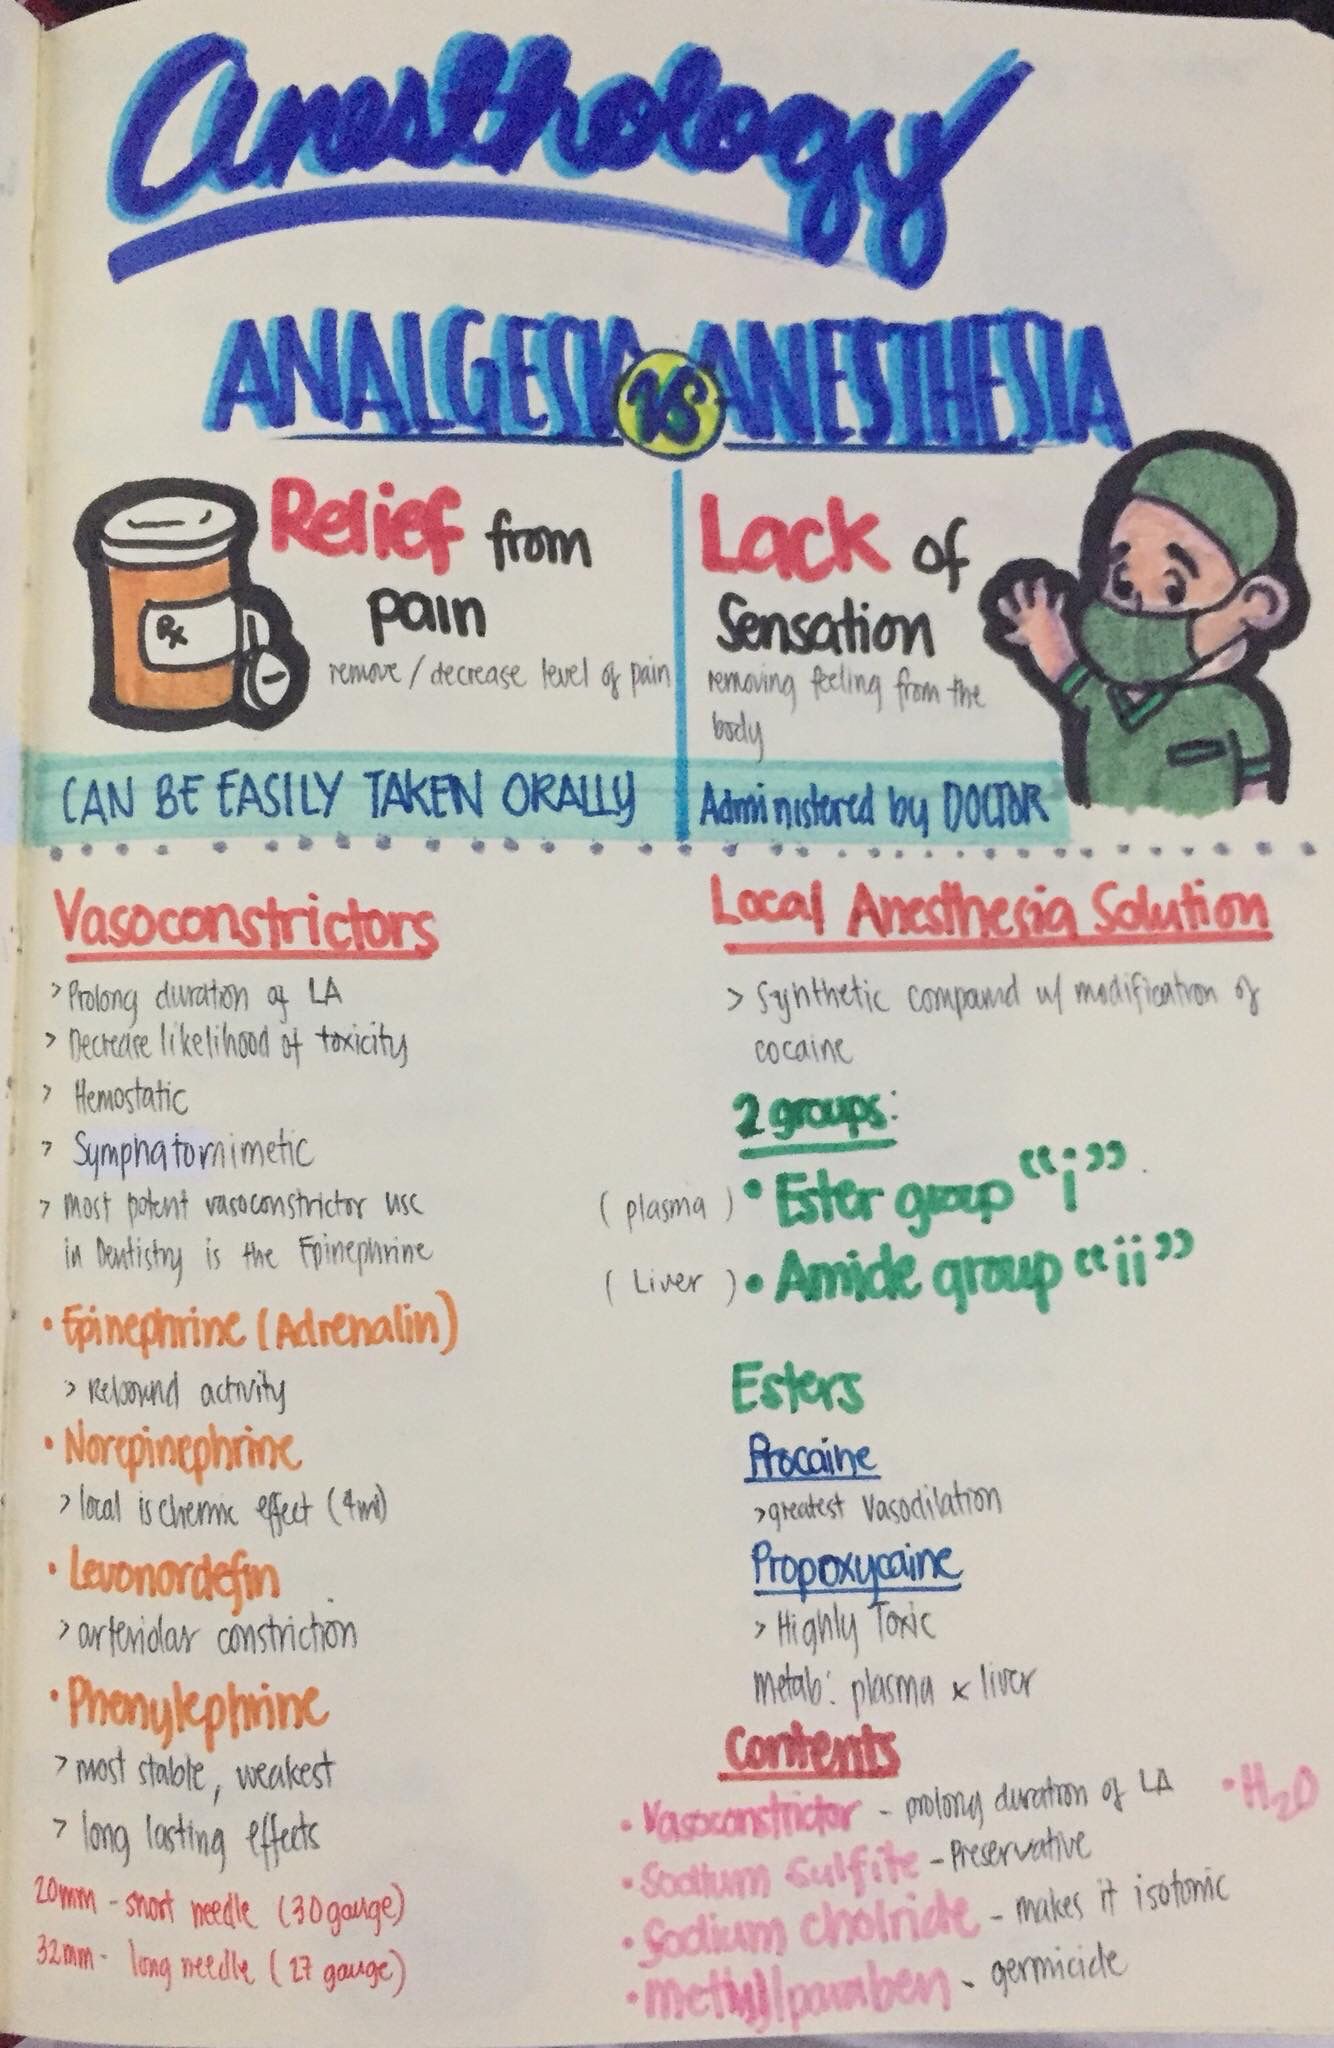 Anesthology
ANALGESIA VS ANESTHESIA
Relief from
pain
remove / decrease level of pain
Rx
CAN BE EASILY TAKEN ORALLY
Lack of
Sensation
removing feeling from the
body
Administered by DOCTOR
Vasoconstrictors
> Prolong duration of LA
> Decrease likelihood of toxicity
> Hemostatic
> Symphatomimetic
> most potent vasoconstrictor use
in Dentistry is the Epinephrine
• Epinephrine (Adrenalin)
> Rebound activity
• Norepinephrine
> local ischemic effect
• Levonordefin
> arteriolar constriction
• Phenylephrine
> most stable, weakest
> long lasting effects
20mm - short needle (30 gauge)
32mm - long needle (27 gauge)
Local Anesthesia Solution
> Synthetic compound w/ modification of
cocaine
2 groups:
(plasma) • Ester group "i"
(Liver) • Amide group "ii"
Esters
Procaine
> greatest vasodilation
Propoxycaine
> Highly Toxic
metab: plasma x liver
Contents
• Vasoconstrictor - prolong duration of LA • H2O
• Sodium sulfite - Preservative
• Sodium cholride - makes it isotonic
• Methylparaben - germicide